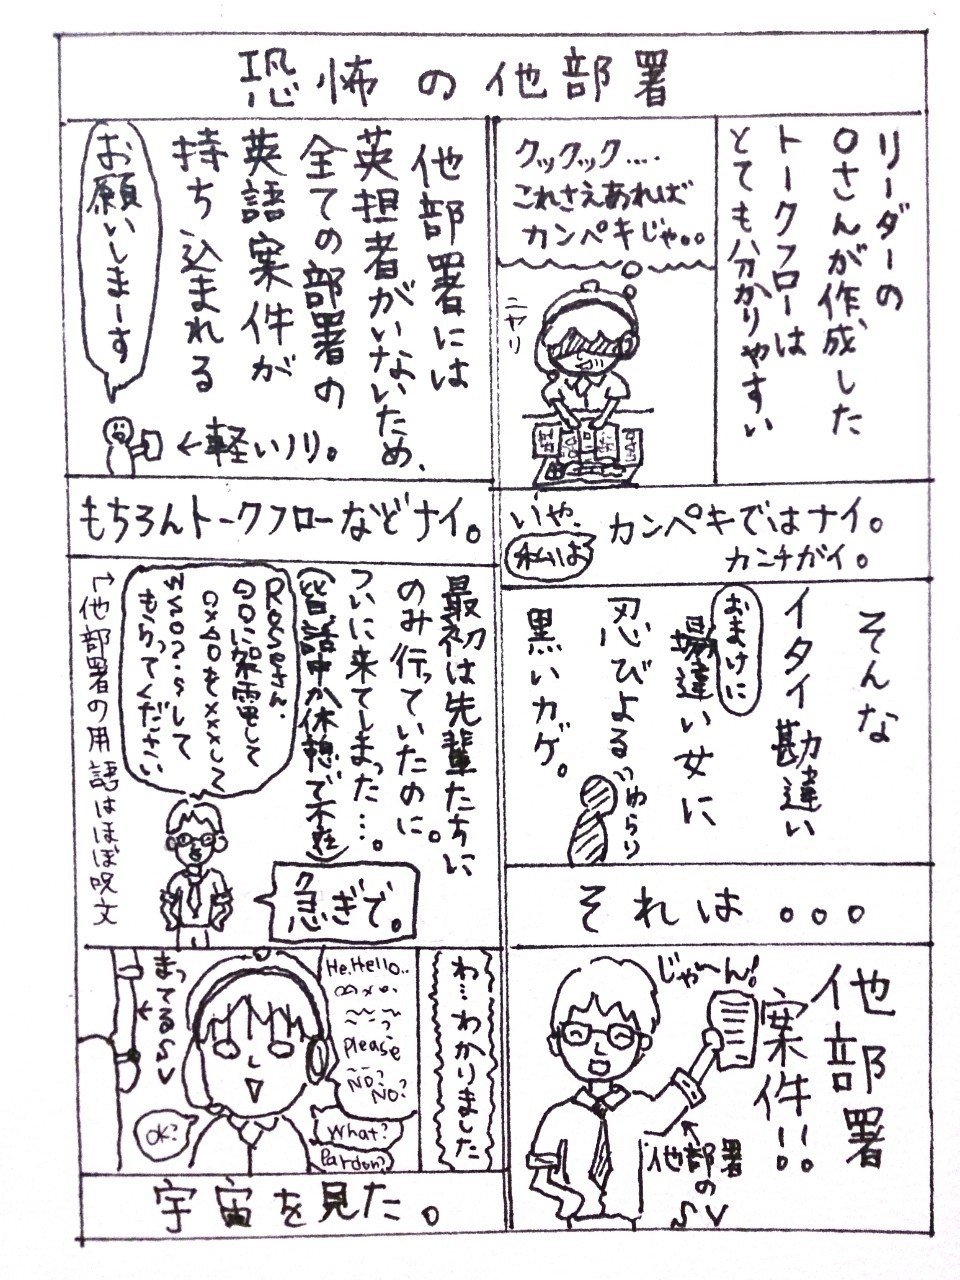 恐怖の他部署
リーダーの
Oさんが作成した
トークフローは
とても分かりやすい
クックック....
これさえあれば
カンペキじゃ..
ニヤリ
いや、
私は
カンペキではナイ。
カンチガイ。
そんな
イタイ勘違い
おまけに
場違い女に
忍びよる
黒いカゲ。
ゆらり
それは...
他部署
案件!!
じゃーん!
←他部署
の
SV
他部署には
英担者がいないため、
全ての部署の
英語案件が
持ち込まれる
お願いしまーす
←軽いノリ。
もちろんトークフローなどナイ。
最初は先輩たちに
のみ行っていたのに。
ついに来てしまった…。
(皆、話中か休憩で不在)
Roseさん、
〇〇に架電して
〇×△〇を×××して
もらってください
←他部署の用語はほぼ呪文
急ぎで。
わ…わかりました
He.Hello..
please
NO?
NO?
What?
Pardon?
OK?
まってるSV
宇宙を見た。